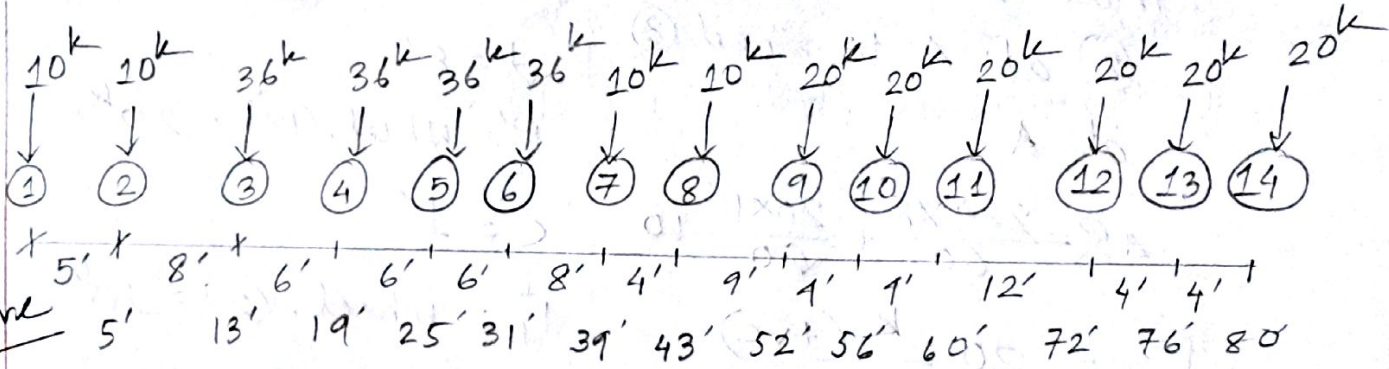 10k 10k 36k 36k 36k 36k 10k 10k 20k 20k 20k 20k 20k 20k
1 2 3 4 5 6 7 8 9 10 11 12 13 14
5' 8' 6' 6' 6' 8' 4' 9' 4' 4' 12' 4' 4'
5' 13' 19' 25' 31' 39' 43' 52' 56' 60' 72' 76' 80'